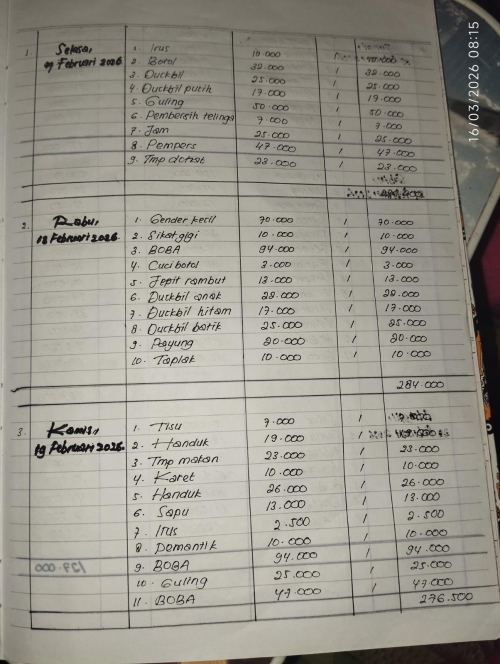 16/03/2026 08:15
1. Selasa, 1. Irus 10.000
Februari 2026 2. Botol 32.000 1 32.000
3. Duckbil 25.000 1 25.000
4. Duckbil putih 17.000 1 17.000
5. Guling 50.000 1 50.000
6. Pembersih telinga 7.000 1 7.000
7. Jam 25.000 1 25.000
8. Pempers 47.000 1 47.000
9. Tmp dotkat 23.000 1 23.000
2. Rabu, 1. Gender kecil 70.000 1 70.000
18 Februari 2026 2. Sikat gigi 10.000 1 10.000
3. BOBA 94.000 1 94.000
4. Cuci botol 3.000 1 3.000
5. Jepit rambut 13.000 1 13.000
6. Duckbil anak 28.000 1 28.000
7. Duckbil hitam 17.000 1 17.000
8. Duckbil batik 25.000 1 25.000
9. Payung 20.000 1 20.000
10. Taplak 10.000 1 10.000
284.000
3. Kamis, 1. Tisu 7.000 1
19 Februari 2026 2. Handuk 19.000 1
3. Tmp makan 23.000 1 23.000
4. Karet 10.000 1 10.000
5. Handuk 26.000 1 26.000
6. Sapu 13.000 1 13.000
7. Irus 2.500 1 2.500
8. Demantik 10.000 1 10.000
9. BOBA 94.000 1 94.000
10. Guling 25.000 1 25.000
11. BOBA 47.000 1 47.000
276.500